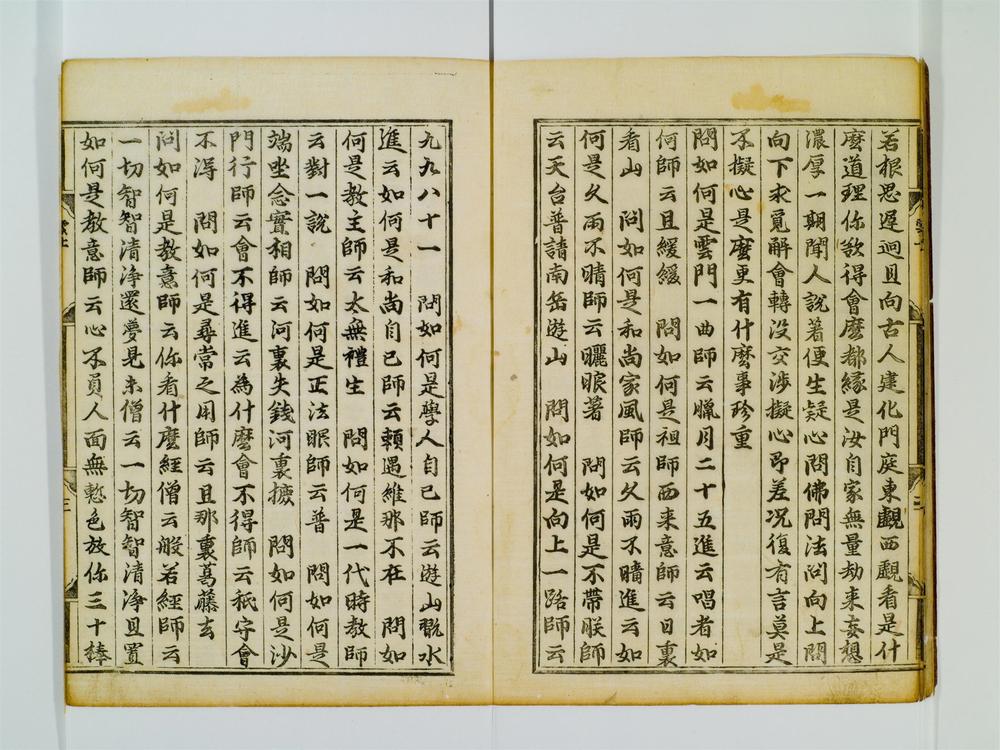 若根思遲迴且向古人建化門庭東覰西覰看是什
麽道理你欲得會麽都緣是汝自家無量劫来妄想
濃厚一期聞人説著便生疑心問佛問法问向上問
向下求覓解會轉没交渉擬心即差况復有言莫是
不擬心是麽更有什麽事珎重
問如何是雲門一曲師云臘月二十五進云唱者如
何師云且緩緩　問如何是祖師西来意師云日裏
看山　问如何是和尚家風師云久雨不晴進云如
何是久雨不晴師云曬眼著　問如何是不帶朕師
云天台普請南岳遊山　問如何是向上一路師云
九九八十一　問如何是學人自己師云遊山翫水
進云如何是和尚自己師云頼遇維那不在　問如
何是教主師云太無禮生　問如何是一代時教師
云對一説　問如何是正法眼師云普　問如何是
端坐念實相師云河裏失錢河裏摝　問如何是沙
門行師云會不得進云為什麽會不得師云秖守會
不得　問如何是尋常之用師云且那裏葛藤去
问如何是教意師云你看什麽經僧云般若經師云
一切智智清浄還夢見未僧云一切智智清浄且置
如何是教意師云心不負人面無慙色放你三十棒